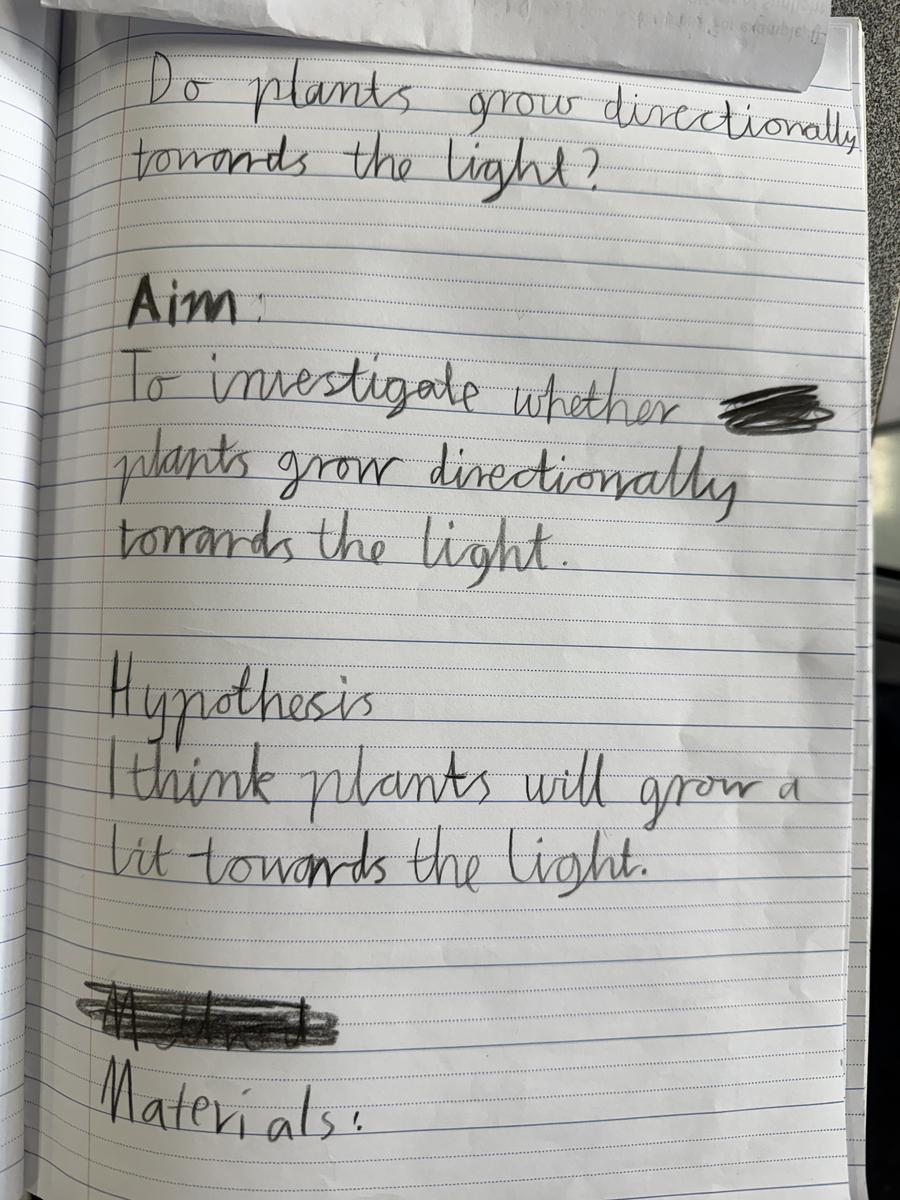 Do plants grow directionally
towards the light?
Aim:
To investigate whether
plants grow directionally
towards the light.
Hypothesis
I think plants will grow a
bit towards the light.
Materials: